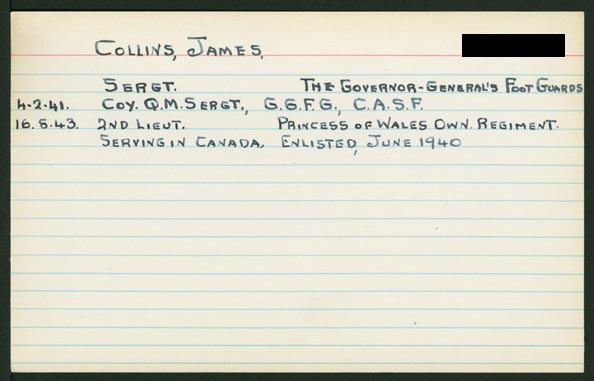 COLLINS, JAMES,
SERGT. THE GOVERNOR-GENERAL'S FOOT GUARDS
4.2.41. COY. Q.M. SERGT., G.G.F.G., C.A.S.F.
16.5.43. 2ND LIEUT. PRINCESS OF WALES OWN. REGIMENT.
SERVING IN CANADA. ENLISTED, JUNE 1940